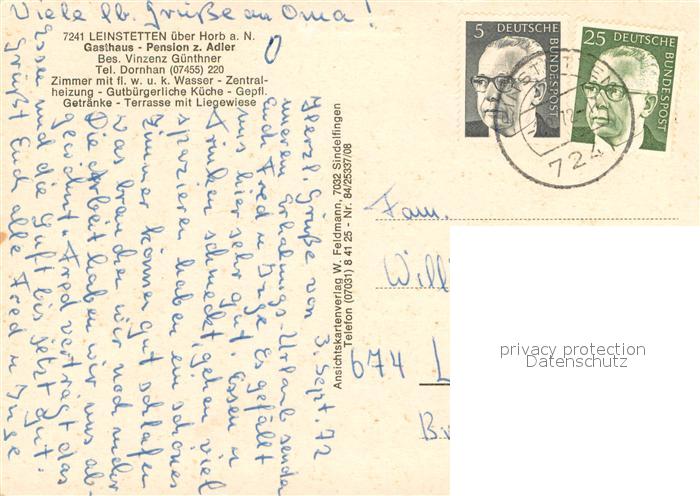 Viele lb. Grüße an Oma!
7241 LEINSTETTEN über Horb a. N.
Gasthaus - Pension z. Adler
Bes. Vinzenz Günthner
Tel. Dornhan (07455) 220
Zimmer mit fl. w. u. k. Wasser - Zentral-
heizung - Gutbürgerliche Küche - Gepfl.
Getränke - Terrasse mit Liegewiese
3. Sept. 72
Herzl. Grüße von
unseren Erholungs-Urlaub sendet
Euch Fred u. Inge. Es gefällt
uns hier sehr gut. Essen u
Trinken schmeckt, gehen viel
spazieren haben ein schönes
Zimmer können gut schlafen
was brauchen wir noch mehr
Die Arbeit haben wir uns ab-
gewöhnt. Fred verträgt das
Essen und die Luft bis jetzt gut.
Grüßt Euch alle Fred u Inge
Ansichtskartenverlag W. Feldmann, 7032 Sindelfingen
Telefon (07031) 8 41 25 - Nr. 84/25337/08
5
DEUTSCHE BUNDESPOST
25
DEUTSCHE BUNDESPOST
724
Fam.
Willi
674 L
privacy protection
Datenschutz